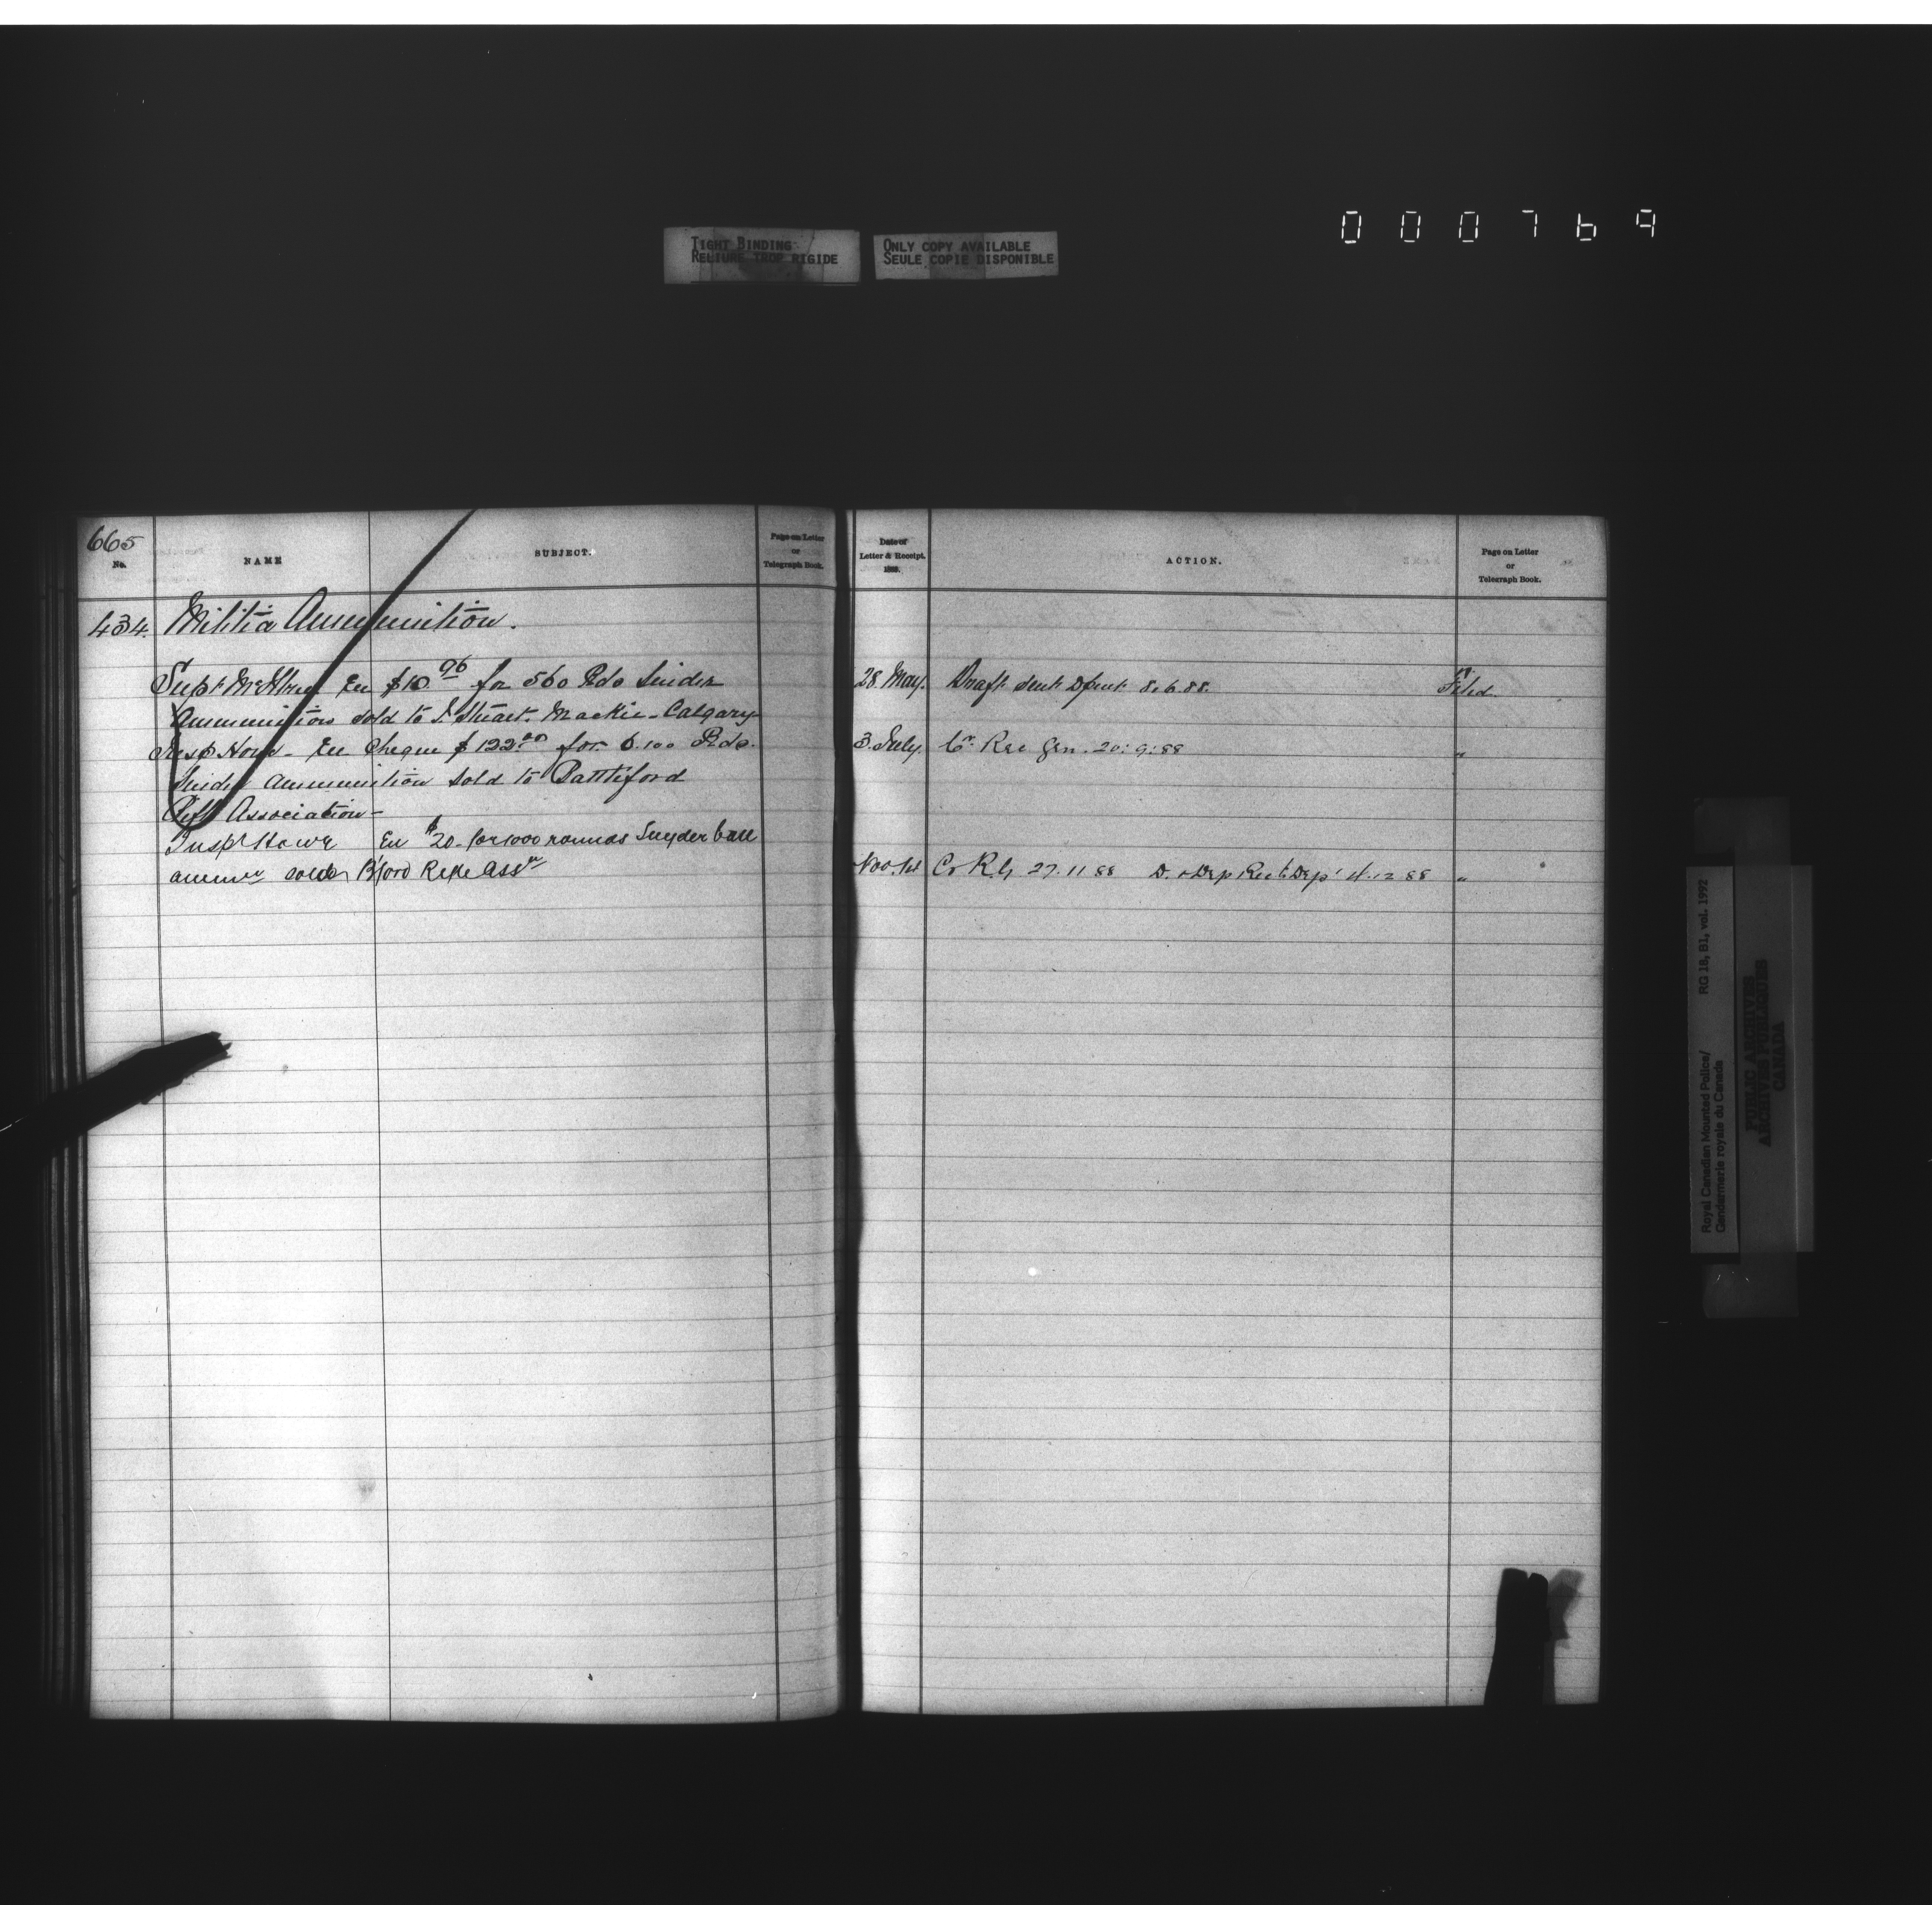 TIGHT BINDING
RELIURE TROP RIGIDE
ONLY COPY AVAILABLE
SEULE COPIE DISPONIBLE
000769
665
No.
NAME
SUBJECT.
Page on Letter
or
Telegraph Book.
434. Militia Ammunition.
Supt McIllree En $10.96 for 560 Rds Snider
Ammunition sold to J. Stuart. Mackie - Calgary
Insp Howe - En Cheque $122.00 for 6.100 Rds.
Snider ammunition sold to Battleford
Rifle Association -
Inspt Howe En $20. for 1000 rounds Snyder ball
ammn sold B'ford Rifle Assn
Date of
Letter & Receipt.
188 .
ACTION.
Page on Letter
or
Telegraph Book.
28. May. Draft sent Dpmt 8.6.88. Filed
3. July. Cr. Rec Gen. 20:9:88 "
Nov. 14 Cr R.G 27.11 88 D. Dep Rect Dept 4.12 88 "
Royal Canadian Mounted Police/
Gendarmerie royale du Canada
RG 18, B1, vol. 1992
PUBLIC ARCHIVES
ARCHIVES PUBLIQUES
CANADA